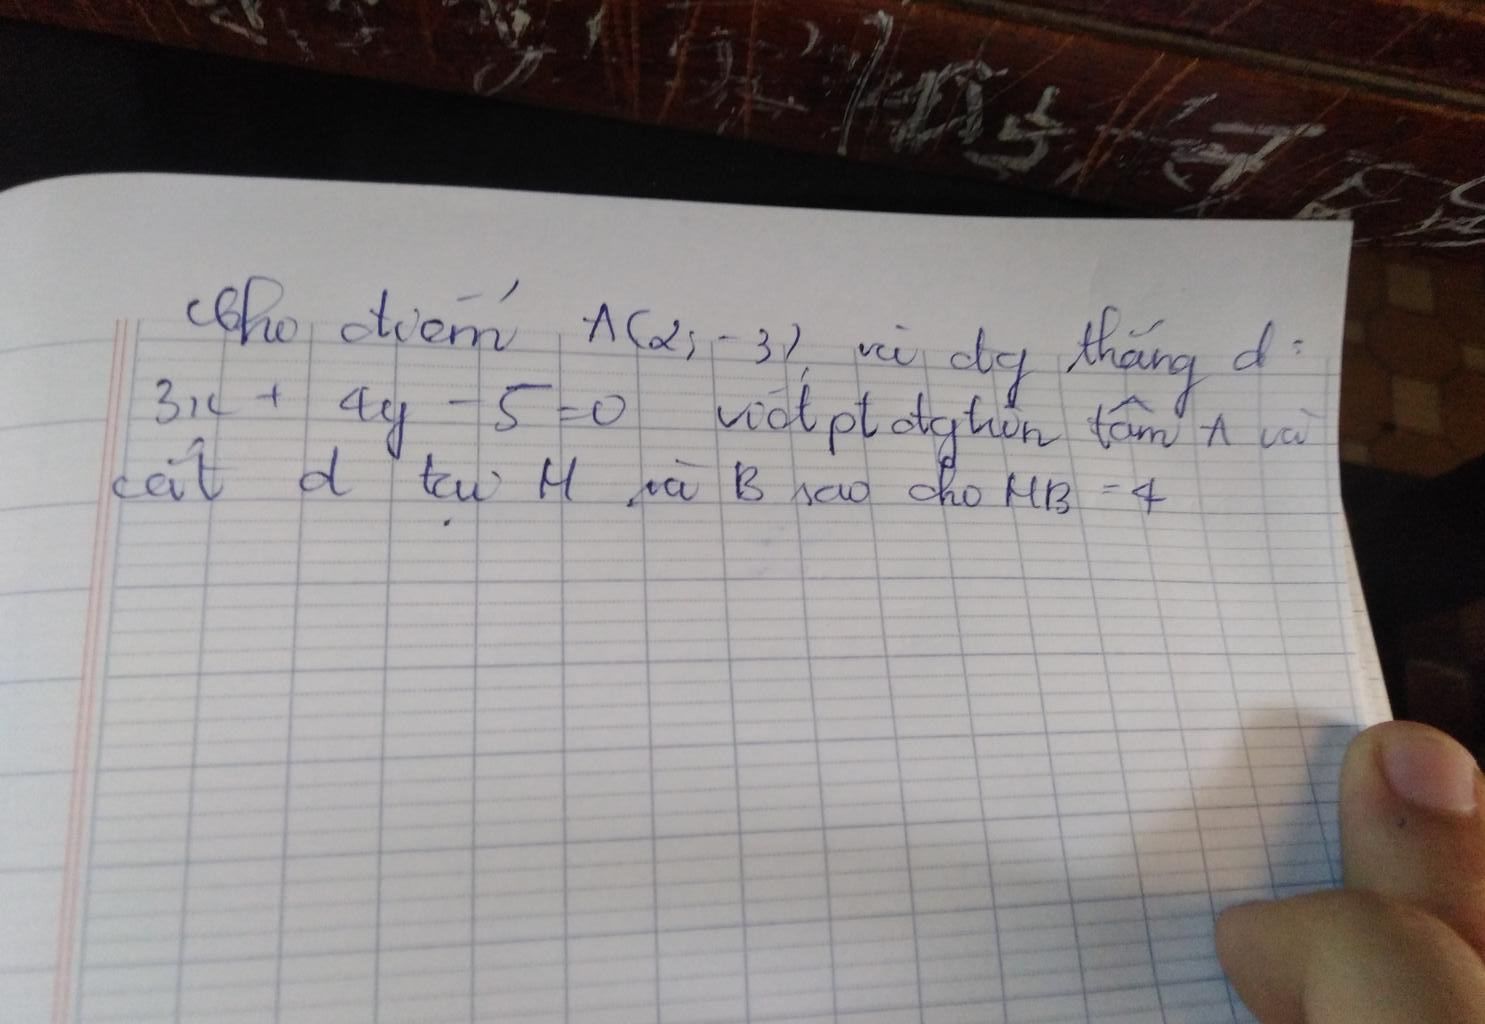 Cho điểm A(2; -3) và đg thẳng d:
3x + 4y - 5 = 0 viết pt đg tròn tâm A và
cắt d tại M và B sao cho MB = 4